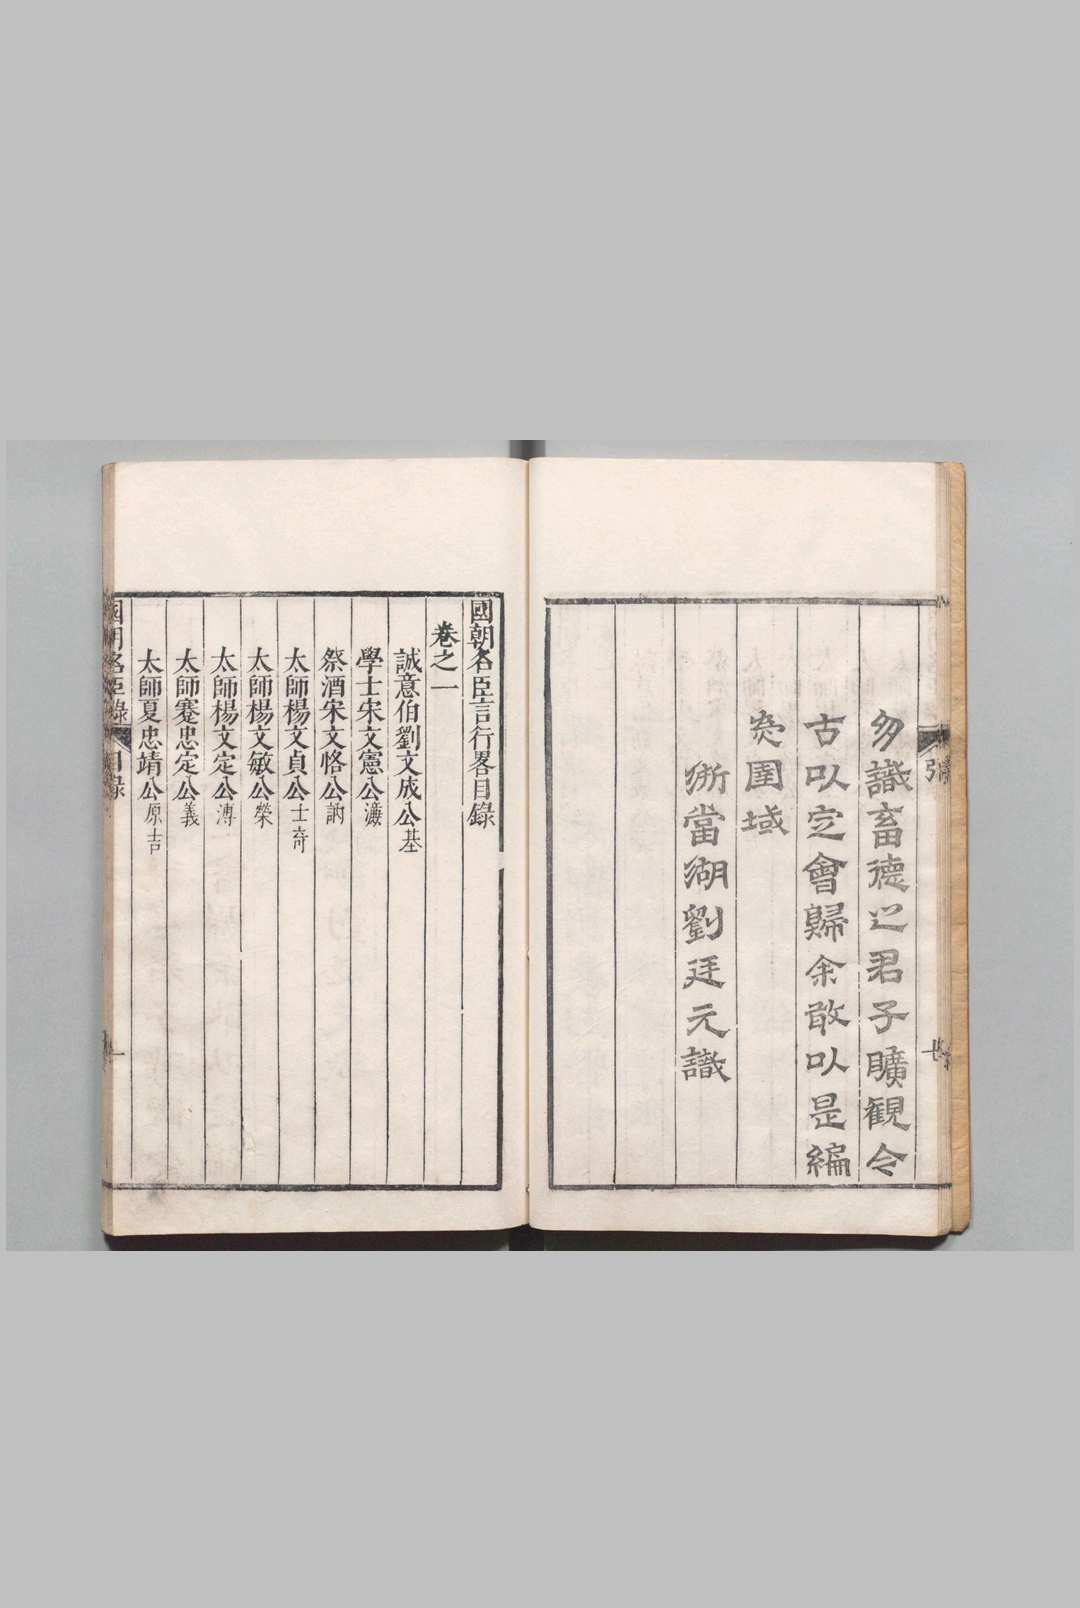 多識畜德之君子曠觀今
古以定會歸余敢以是編
圍域
浙當湖劉廷元識
引
國朝名臣言行畧目錄
卷之一
誠意伯劉文成公基
學士宋文憲公濂
祭酒宋文恪公訥
太師楊文貞公士奇
太師楊文敏公榮
太師楊文定公溥
太師蹇忠定公義
太師夏忠靖公原吉
國朝名臣錄 目錄 一